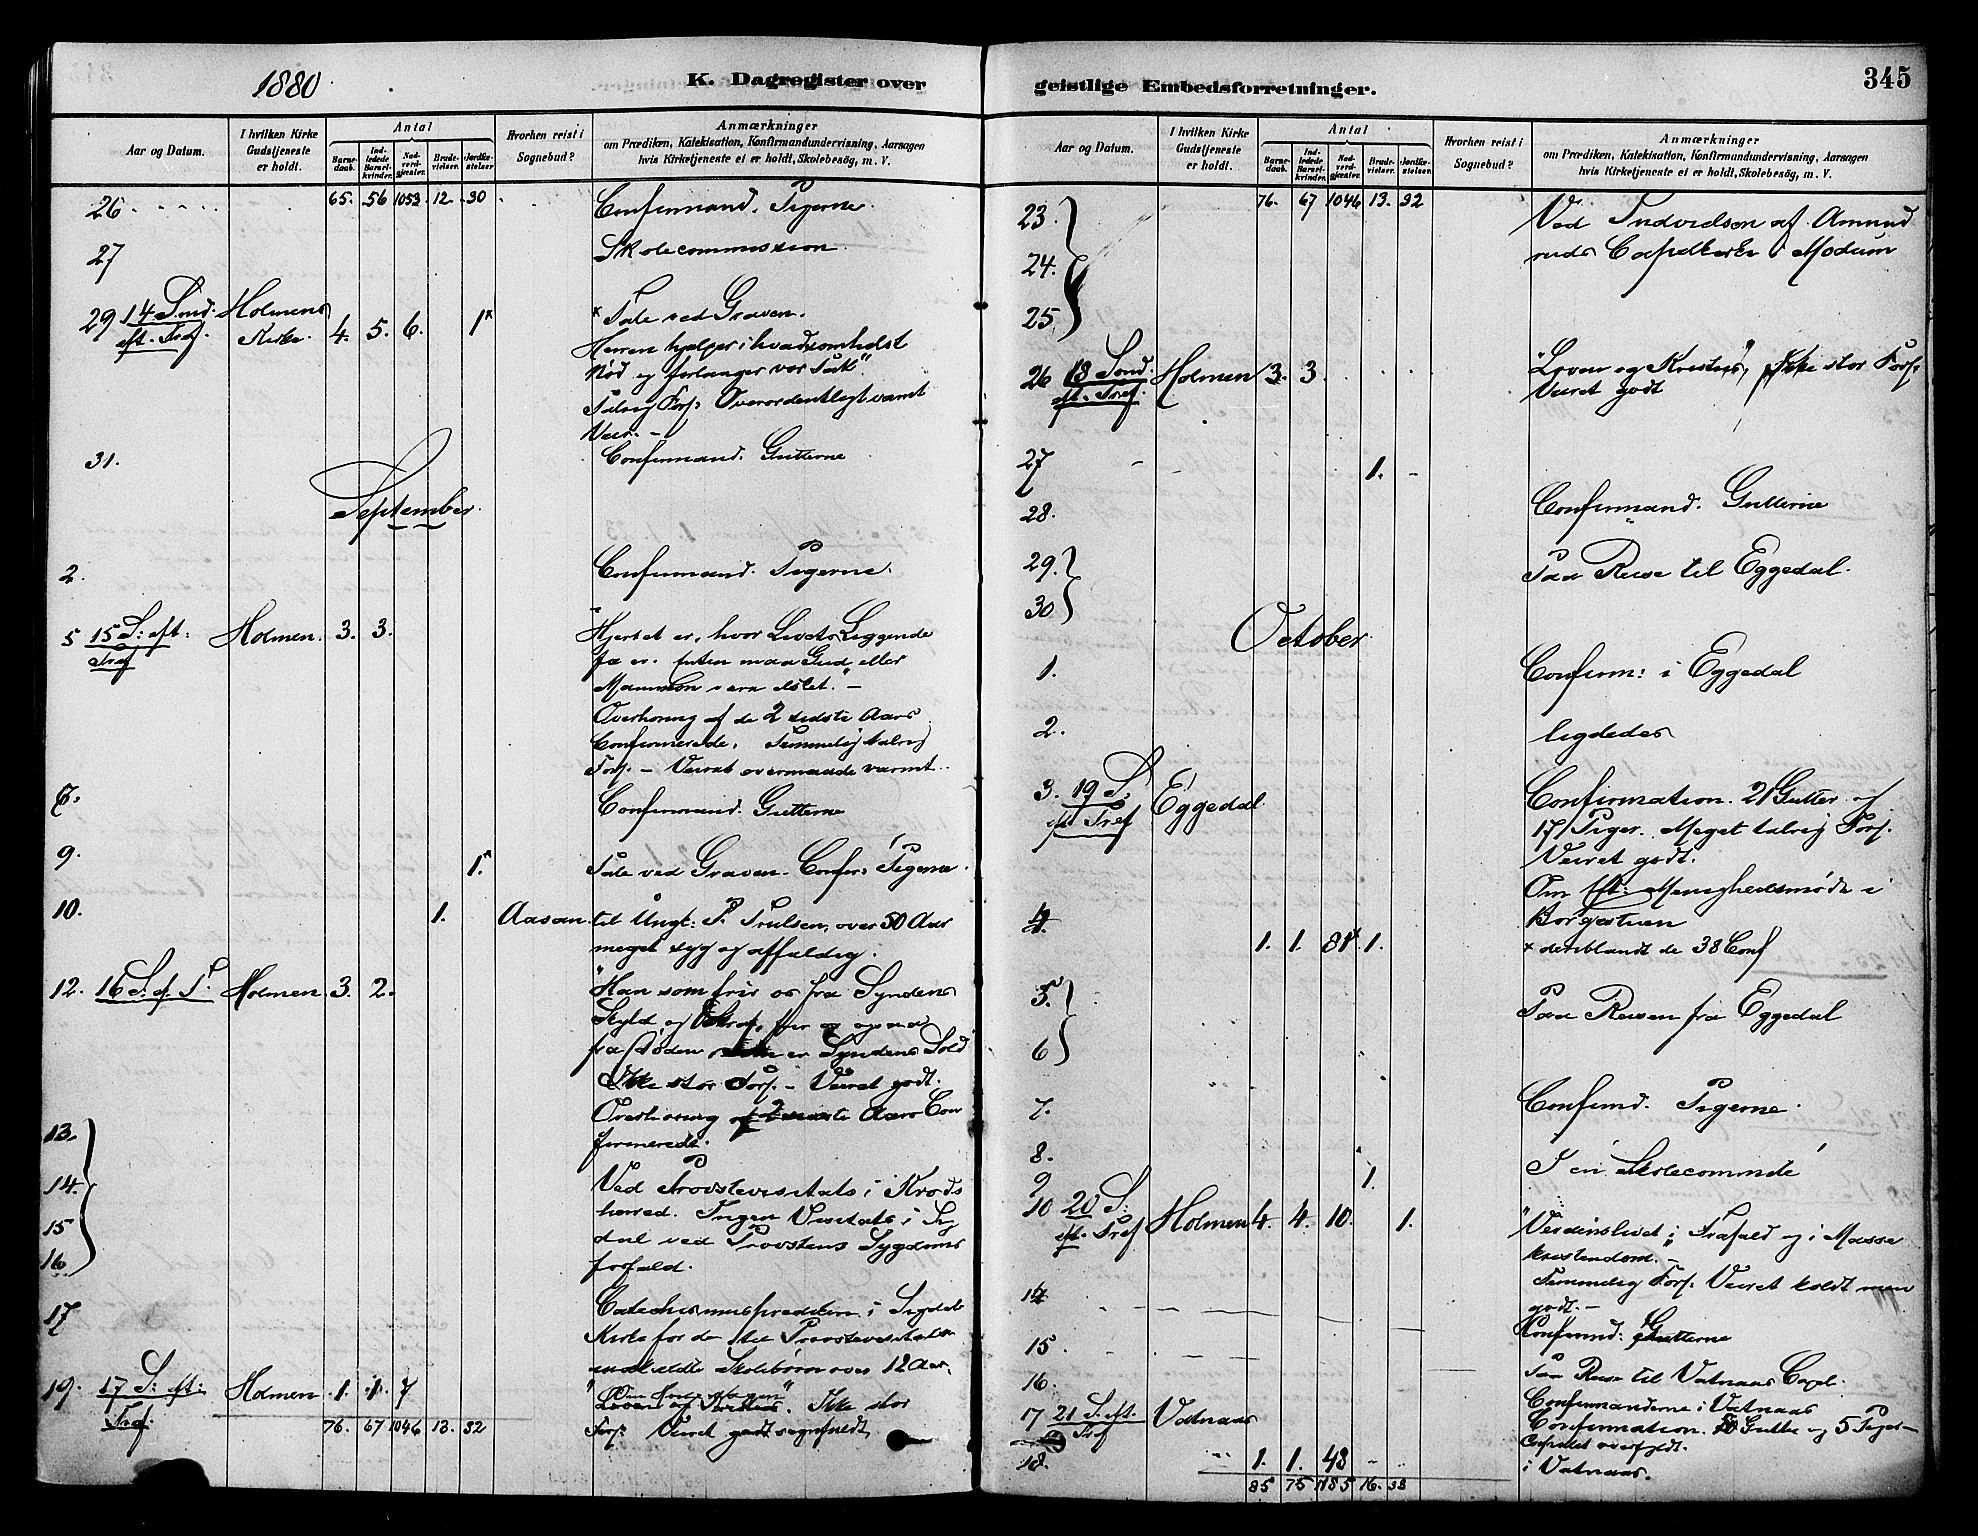 1880
K. Dagregister over
Aar og Datum.
I hvilken Kirke Gudstjeneste er holdt.
Antal
Barnedaab.
Indledede Barselkvinder.
Nadverdgjester.
Brudevielser.
Jordfæstelser
Hvorhen reist i Sognebud?
Anmærkninger
om Prædiken, Katekisation, Konfirmandundervisning, Aarsagen
hvis Kirketjeneste ei er holdt, Skolebesög, m. V.
26 65. 56 1053 12. 30 Confirmand. Pigerne.
27 Skolecommission
29 14 Sønd. eft. Tref. Holmens Kirke. 4. 5. 6. 1x x Tale ved Graven.
Herren hjælper i hvadsomhelst
Nød og forlanger vor Tak".
Talrig Fors. Overordentligt varmt
Veir. -
31. Confirmand. Gutterne
September
2. Confirmand. Pigerne.
5 15 S: eft: Tref Holmen. 3. 3. "Hjertet er, hvor Livets Liggende
fæ er. Enten maa Gud eller
Mammon være elsket." -
Overhøring af de 2 sidste Aars
Confirmerede. Temmelig talrig
Fors. - Veiret overmaade varmt.
7. Confirmand. Gutterne
9. 1.x Tale ved Graven. Confir: Pigerne.
10. 1. Aasan. til Ungk: P. Trulsen, over 50 Aar
meget syg og affældig.
12. 16 S. ef. T. Holmen 3. 2. "Han som frir os fra Syndens
Skyld og frir os ogsaa
fra Døden er Syndens Sold
Ikke stor Fors. - Veiret godt.
Overhøring af 2 sidste Aars Con
firmerede.
13.
14. Ved Provstevisitats i Krøds
15 herred. Ingen Visitats i Sig
16 dal ved Provstens Sygdoms
forfald.
17 Catechismusprædiken i Sigdals
Kirke for de til Provstevisitatsen
indkaldte Skolebørn over 12 Aar.
19. 17 S: eft: Tref. Holmen .1. .1. 7 "Loven og Kristus". Ikke stor
76. 67 1046 13. 32 Fors: Veiret godt regnfuldt
geistlige Embedsforretninger.
345
Aar og Datum.
I hvilken Kirke Gudstjeneste er holdt.
Antal
Barnedaab.
Indledede Barselkvinder.
Nadverdgjester.
Brudevielser.
Jordfæstelser
Hvorhen reist i Sognebud?
Anmærkninger
om Prædiken, Katekisation, Konfirmandundervisning, Aarsagen
hvis Kirketjeneste ei er holdt, Skolebesög, m. V.
23. 76. 67 1046 13. 32 Ved Indvielsen af Amund
24. ruds Capelkirke i Modum
25.
26 18 Sønd. eft. Tref. Holmen 3. 3. "Loven og Kristus", Ikke stor Fors.
Veiret godt
27 1.
28. Confirmand. Gutterne
29. Paa Reise til Eggedal.
30
October
1. Confirm: i Eggedal
2. ligeledes
3. 19 S. eft Tref Eggedal. Confirmation. 21 Gutter og
17 Piger. Meget talrig Fors.
Veiret godt.
Om Eft: Menighedsmøde i
4. Borgestuen
1. 1. 81x 1. x deriblandt de 38 Conf
5. Paa Reisen fra Eggedal
6
7. Confirmd. Pigerne.
8. I en Skolecommite
9 1.
10 20 S: eft. Tref Holmen 4. 4. 10. 1. "Verdenslivet i Frafald og i Masse
kristendom. -
Temmelig Fors. Veiret koldt men
14 godt. -
Konfirmd: Gutterne
15
16. Paa Reise til Vatnaas Capel.
Confirmanderne i Vatnaas
17 21 S. eft. Tref Vatnaas Confirmation. Gutte og 5 Piger -
Capellet overfyldt.
18. 1. 1. 48 i Vatnaas.
85 75 1185 16. 33